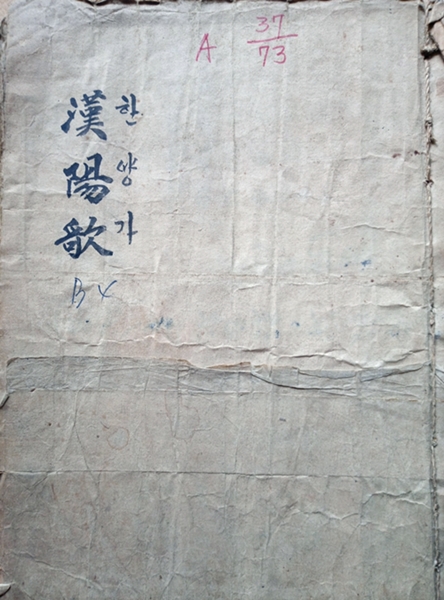 A 37/73
漢陽歌
한양가
B X